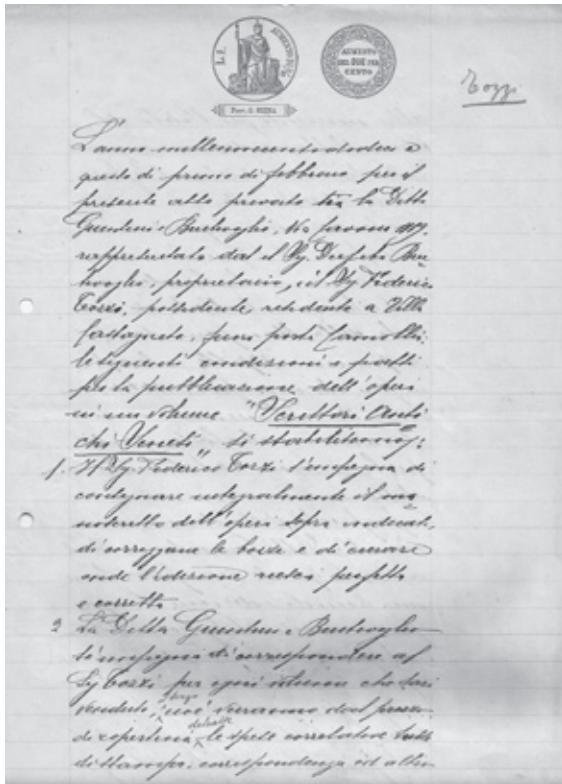 AUMENTO
DEL DUE PER
CENTO
Tozzi
L'anno millenovecentododici e
questo dì primo di febbraio per il
presente atto privato tra la Ditta
Giuntini e Bentivoglio, Via
rappresentata dal Sg. Ben
tivoglio, proprietario, e il Sg. Federico
Tozzi, possidente, residente a Villa
Castagneto, fuori porta Camollia,
le seguenti condizioni e patti
per la pubblicazione dell'opera
in un volume "Scrittori Anti
chi Senesi" si stabiliscono:
1. Il Sg. Federico Tozzi s'impegna di
consegnare integralmente il ma
noscritto dell'opera sopra indicata,
di correggerne le bozze e di curare
onde l'edizione riesca perfetta
e corretta
2 La Ditta Giuntini e Bentivoglio
s'impegna di corrispondere al
Sg Tozzi per ogni volume che sarà
venduto, verranno dal prezzo
di copertina detratte le spese correlative
di stampa, corrispondenza ed altri